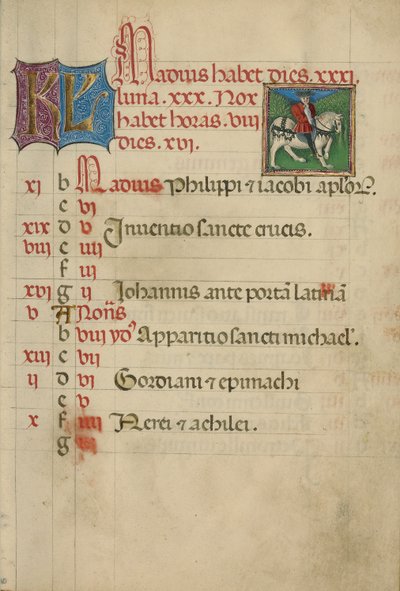 KL Madius habet dies. xxxi.
luna. xxx. Nox
habet horas. viii
dies. xvi.
xi b Madius Philippi ⁊ iacobi apl'oꝝ.
c vi
xix d v Inuentio sancte crucis.
viii e iiii
f iii
xvi g ii Iohannis ante portā latinā
v A Nonis
b viii yđ Apparitio sancti michael'.
xiii c vii
ii d vi Gordiani ⁊ epimachi
e v
x f iiii Nerei ⁊ achilei.
g iii